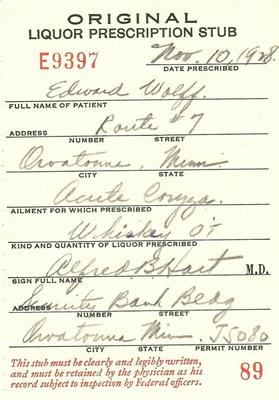 ORIGINAL
LIQUOR PRESCRIPTION STUB
E9397 Nov. 10, 1928.
DATE PRESCRIBED
Edward Wolff.
FULL NAME OF PATIENT
Route #7
ADDRESS NUMBER STREET
Owatonna, Minn.
CITY STATE
Acute Coryza.
AILMENT FOR WHICH PRESCRIBED
Whiskey O
KIND AND QUANTITY OF LIQUOR PRESCRIBED
Alfred B Hart M.D.
SIGN FULL NAME
Security Bank Bldg
ADDRESS NUMBER STREET
Owatonna Minn. J5080
CITY STATE PERMIT NUMBER
This stub must be clearly and legibly written,
and must be retained by the physician as his
record subject to inspection by Federal officers.
89